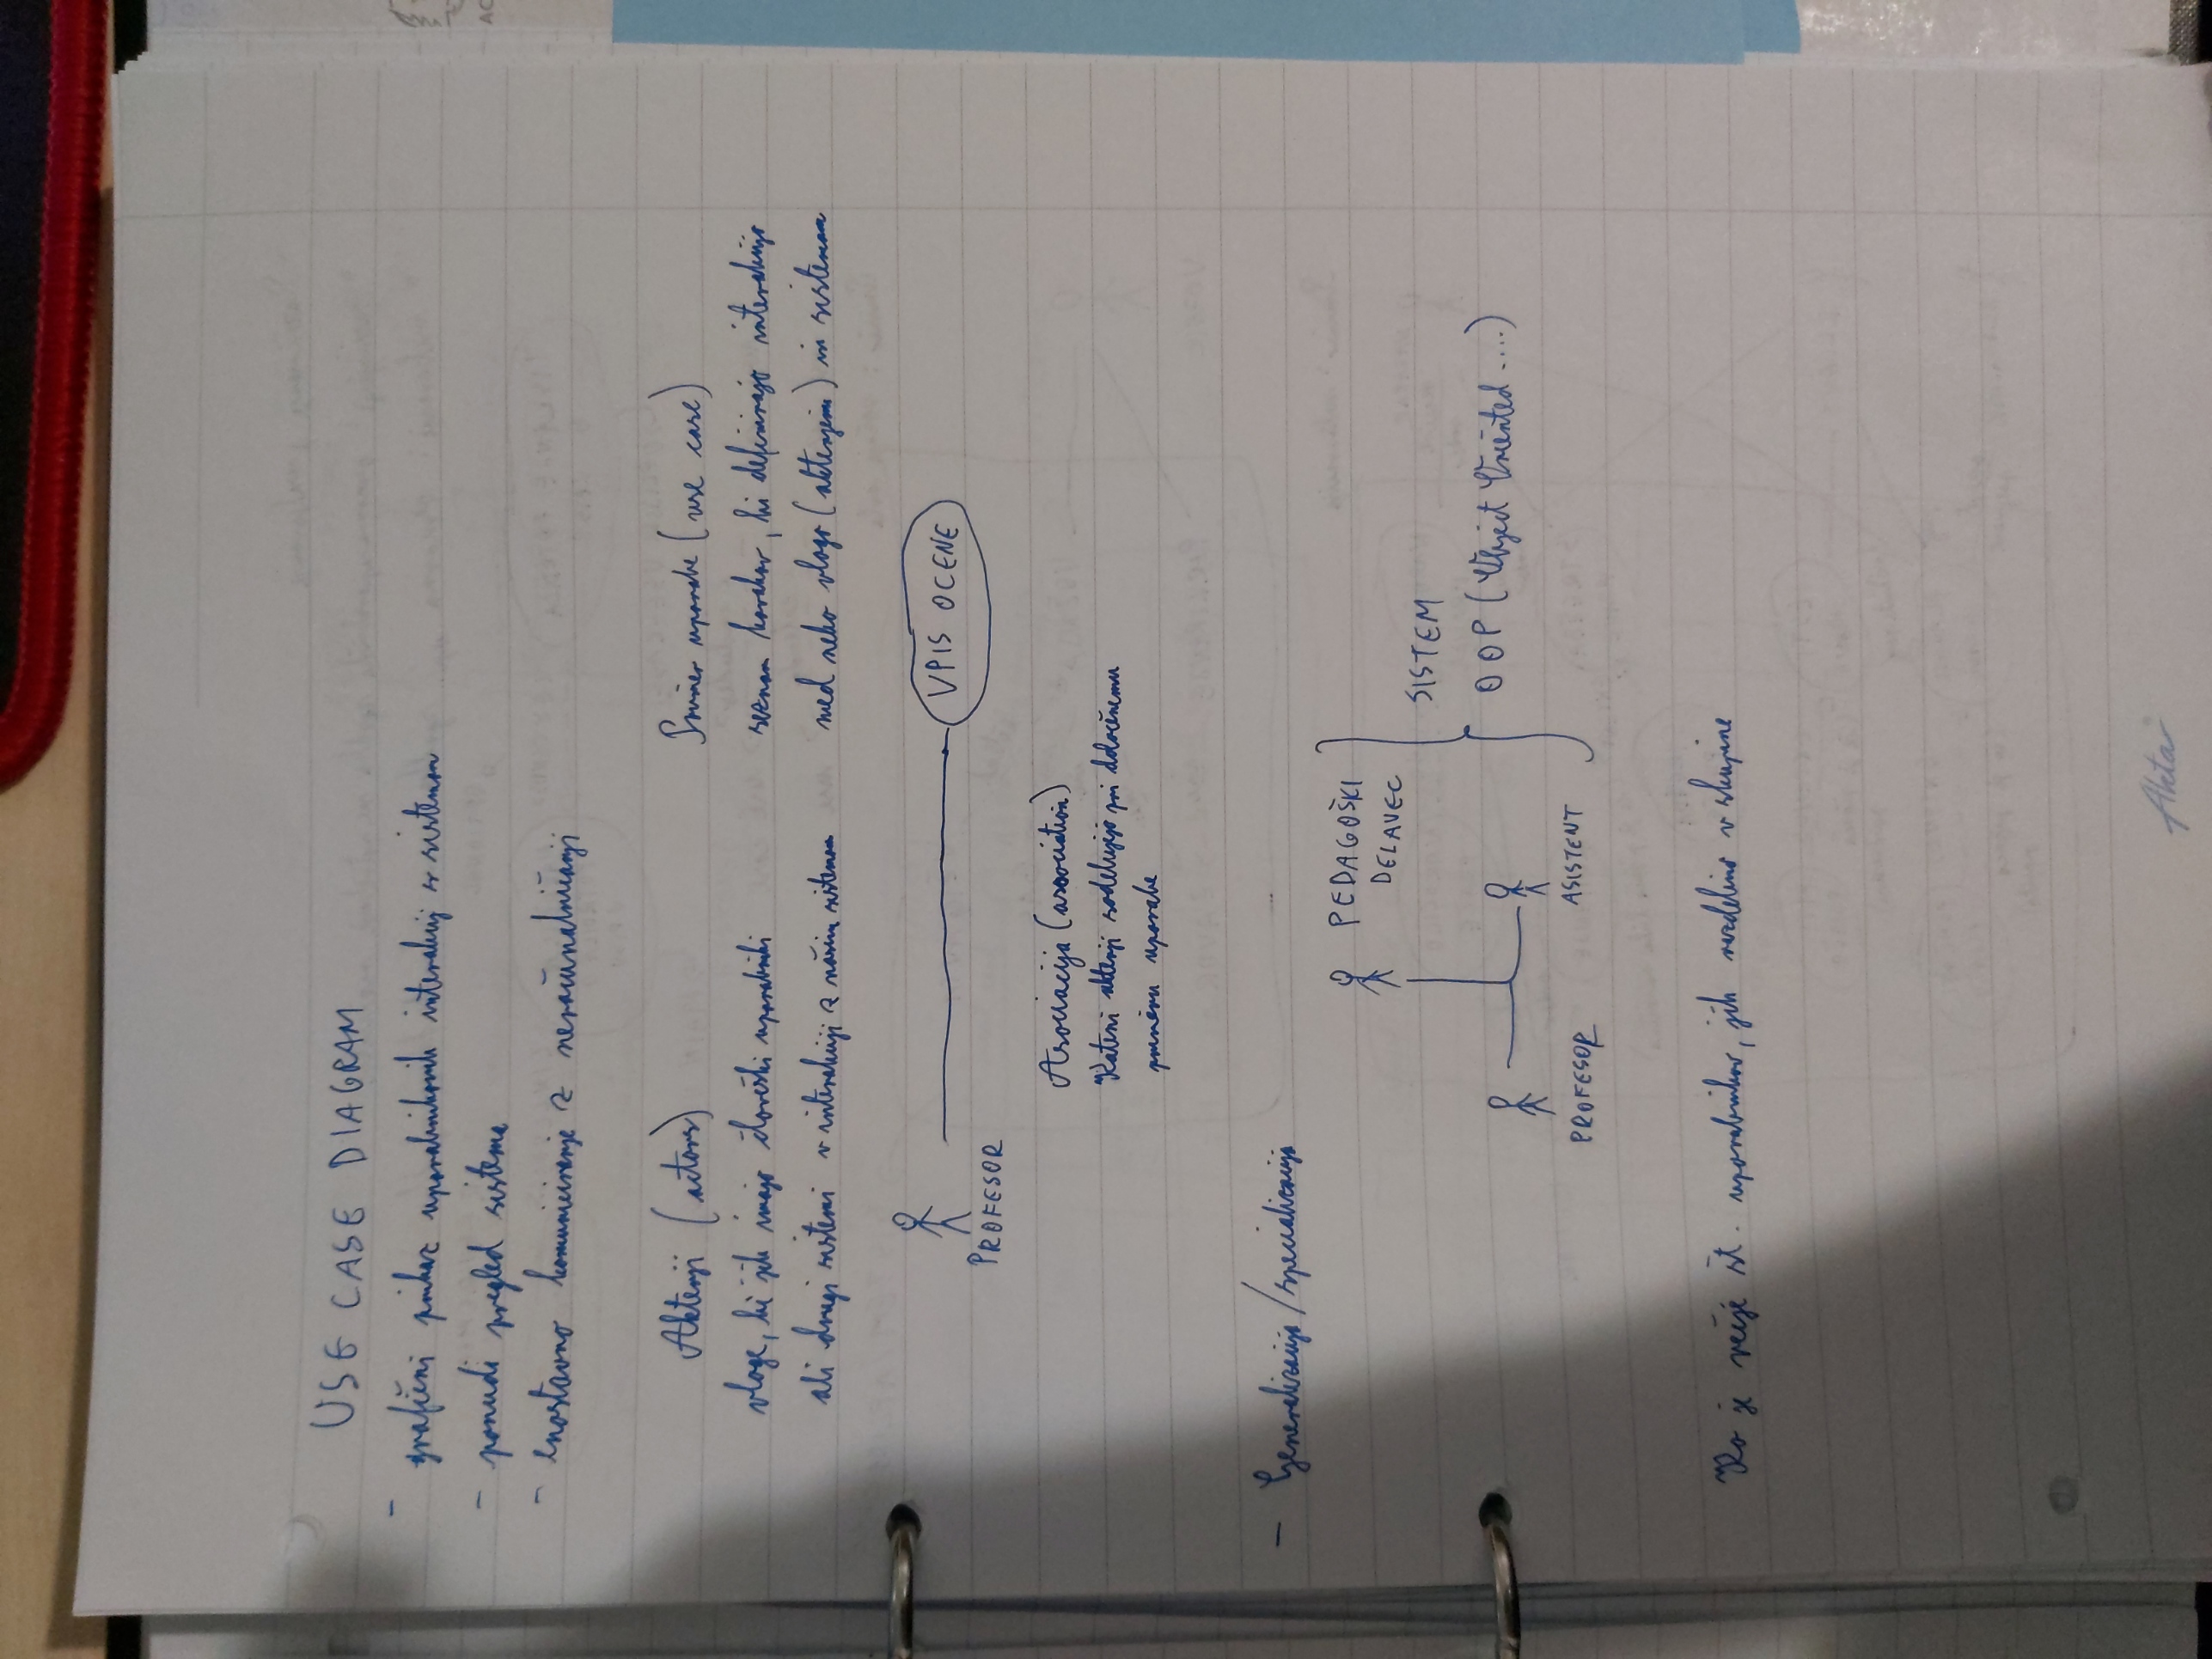 USE CASE DIAGRAM
- grafični prikaz uporabnikovih interakcij s sistemom
- ponudi pregled sistema
- enostavno komuniciranje z neračunalničarji
Akterji (actors)
vloge, ki jih imajo človeški uporabniki
ali drugi sistemi v interakciji z našim sistemom
Primer uporabe (use case)
seznam korakov, ki definirajo interakcijo
med neko vlogo (akterjem) in sistemom
PROFESOR
VPIS OCENE
Asociacija (association)
Kateri akterji sodelujejo pri določenemu
primeru uporabe
- Generalizacija/specializacija
PEDAGOŠKI
DELAVEC
PROFESOR
ASISTENT
SISTEM
OOP (Object Oriented ....)
Ko je večje št. uporabnikov, jih razdelimo v skupine
Akta